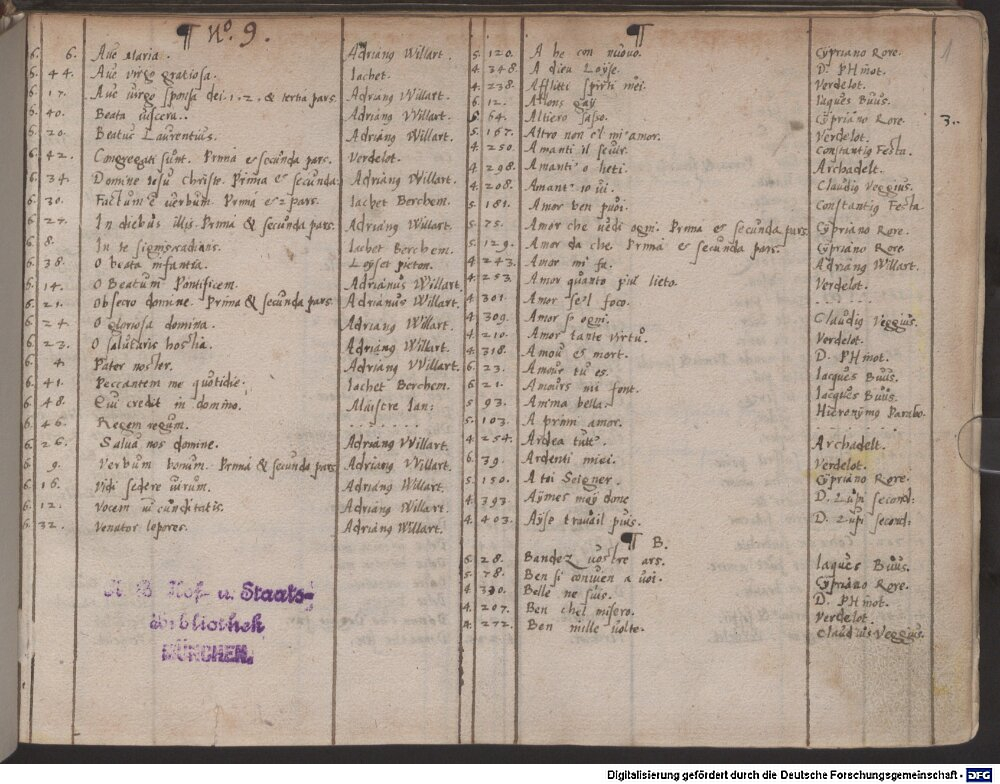 ¶ No. 9.
6. 6. Ave Maria. Adrianꝰ Willart.
5. 44. Ave virgo gratiosa. Iachet.
6. 17. Ave virgo sponsa dei. 1. 2. & tertia pars. Adrianꝰ VVillart.
6. 40. Beata viscera. Adrianꝰ VVillart.
5. 20. Beatus Laurentius. Adrianꝰ VVillart.
6. 42. Congregati sunt. Prima & secunda pars. Verdelot.
6. 34. Domine Iesu Christe. Prima & secunda. Adrianꝰ VVillart.
6. 30. Factum ē verbum. Prima & 2 pars. Iachet Berchem.
6. 27. In diebus illis Prima & secunda pars. Adrianꝰ VVillart.
6. 8. In te signis radians. Iachet Berchem.
6. 38. O beata infantia. Loyset pieton.
6. 14. O Beatum Pontificem. Adrianus VVillart.
6. 21. Obsecro domine. Prima & secunda pars. Adrianus VVillart.
6. 24. O gloriosa domina. Adrianꝰ VVillart.
6. 23. O salutaris hostia. Adrianꝰ VVillart.
6. 4. Pater noster. Adrianꝰ VVillart.
6. 41. Peccantem me quotidie. Iachet Berchem.
6. 48. Qui credit in domino. Maistre Ian:
6. 46. Regem regum. . . . . . .
6. 26. Salva nos domine. Adrianꝰ VVillart.
6. 9. Verbum bonum. Prima & secunda pars. Adrianꝰ VVillart.
6. 16. Vidi sedere virum. Adrianꝰ Willart.
6. 12. Vocem iucunditatis. Adrianꝰ VVillart.
6. 32. Venator lepores. Adrianꝰ VVillart.
K. B. Hof- u. Staats-
Bibliothek
MÜNCHEN.
¶
5. 120. A be con nuovo. Cypriano Rore.
4. 348. A dieu Loyse. D. PHinot.
4. 238. Affliti spirti mei. Verdelot.
6. 12. Allons gay Iaques Buus.
5. 64. Altiero sasso. Cypriano Rore. 3.
5. 167. Altro non e'l mi' amor. Verdelot.
4. 250. Amanti il Constantiꝰ Festa.
4. 298. Amanti o lieti. Archadelt.
4. 208. Amant' io vi. Claudiꝰ Veggius.
5. 181. Amor ben puoi. Constantiꝰ Festa
5. 75. Amor che vedi ogni. Prima & secunda pars. Cypriano Rore.
5. 129. Amor da che. Prima & secunda pars. Cypriano Rore
4. 243. Amor mi fa. Adrianꝰ Willart.
4. 253. Amor quanto piu lieto. Verdelot.
4. 301. Amor se'l foco. . . . . . .
4. 309. Amor s' ogni. Claudiꝰ Veggius.
4. 210. Amor tante virtu. Verdelot.
4. 318. Amour & mort. D. PHinot.
6. 23. Amour tu es. Iacques Buus.
6. 21. Amours mi font. Iacques Buus.
5. 93. Anima bella. Hieronymo Parabo.
5. 103. A prim amor. . . . . . .
4. 254. Ardea tutt'. Archadelt.
6. 39. Ardenti miei. Verdelot.
5. 150. A toi Seigner. Cypriano Rore.
4. 393. Aymes moy done D. Lupi second:
4. 403. Ayse travail puis. D. Lupi second:
¶ B.
6. 28. Bandez vostre ars. Iaques Buus.
5. 78. Ben si convien a voi. Cypriano Rore.
4. 330. Belle ne suis. D. PHinot.
4. 207. Ben chel misero. Verdelot.
4. 272. Ben mille volte. Claudius Veggius.
1
Digitalisierung gefördert durch die Deutsche Forschungsgemeinschaft - DFG